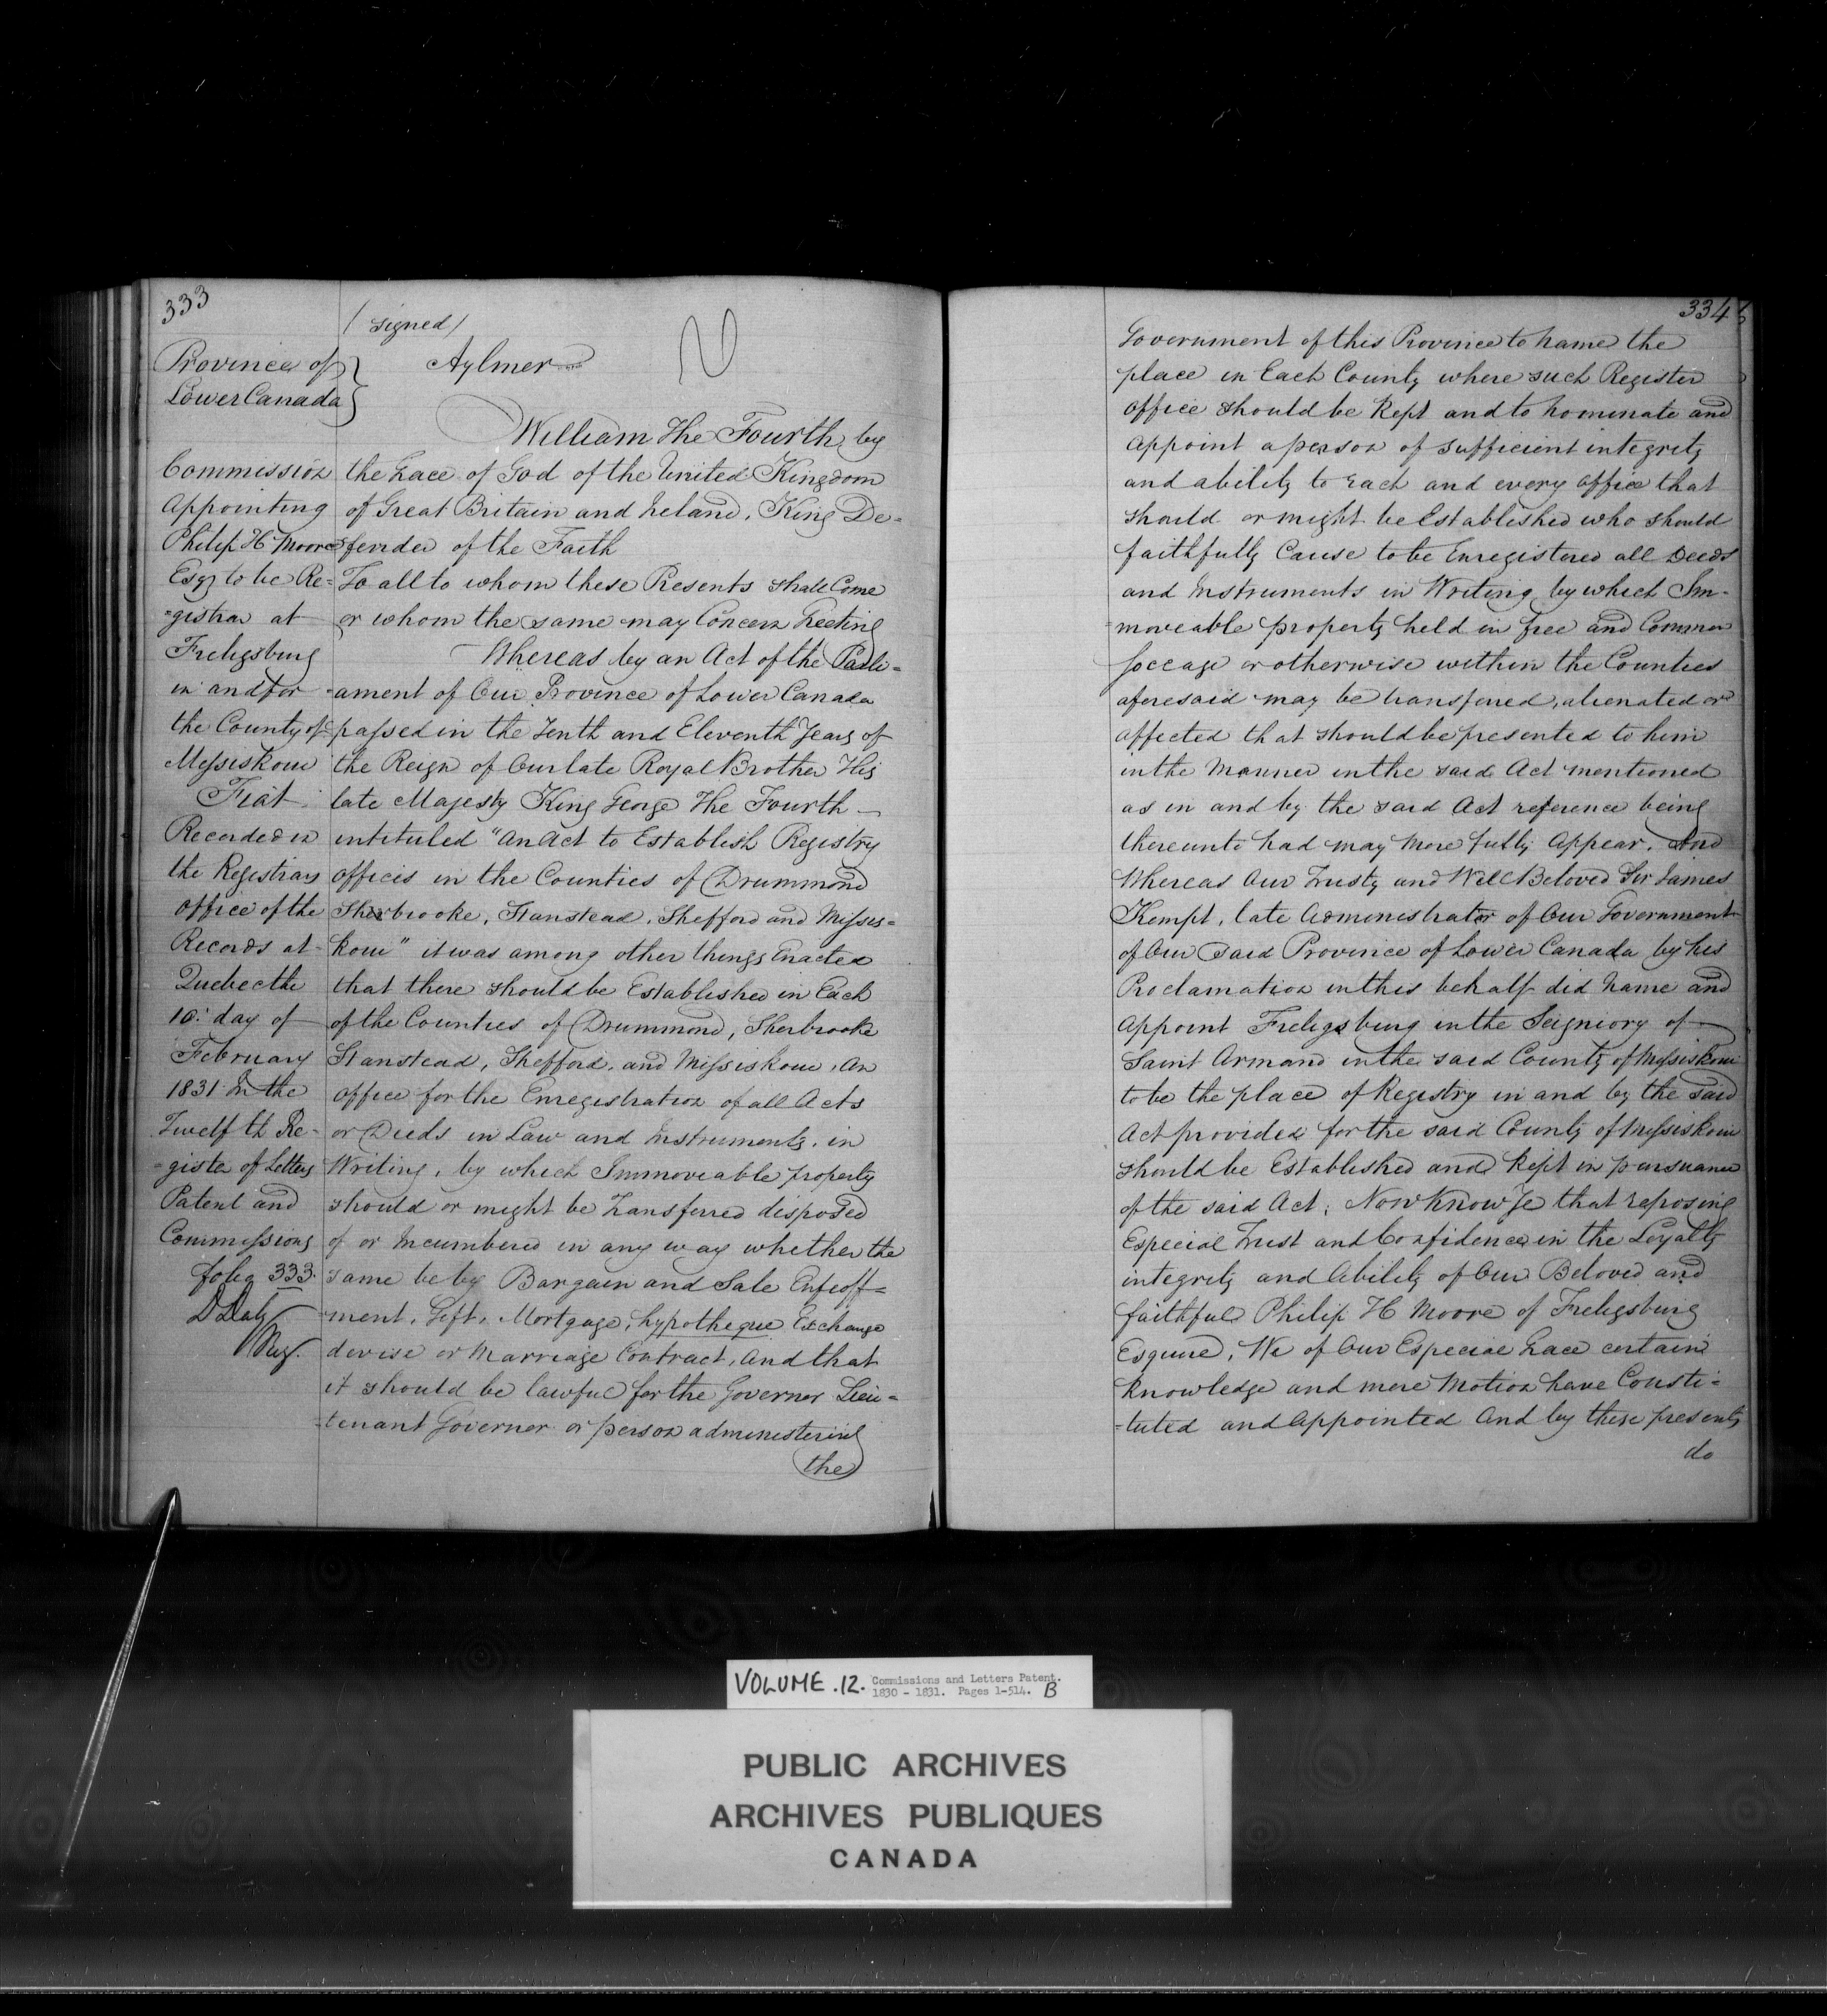 333
(signed)
Province of
Lower Canada
Aylmer
Commission
Appointing
Philip H Moore
Esqr to be Re-
=gistrar at
Freligsburg
in and for
the County of
Missiskoui
Fiat
Recorded in
the Registrars
Office of the
Records at
Quebec the
10: day of
February
1831 In the
Twelfth Re-
=gister of Letters
Patent and
Commissions
folio 333.
D Daly
Reg.
William The Fourth by
the Grace of God of the United Kingdom
of Great Britain and Ireland, King De=
fender of the Faith
To all to whom these Presents shall Come
or whom the same may Concern Greeting
Whereas by an Act of the Parli=
=ament of Our Province of Lower Canada
passed in the Tenth and Eleventh Years of
the Reign of Our late Royal Brother His
late Majesty King George The Fourth
intituled "An Act to Establish Registry
offices in the Counties of Drummond
Sherbrooke, Stanstead, Shefford and Missis=
koui" it was among other things Enacted
that there should be Established in Each
of the Counties of Drummond, Sherbrooke
Stanstead, Shefford, and Missiskoui, An
office for the Enregistration of all Acts
or Deeds in Law and Instruments, in
Writing, by which Immoveable property
should or might be Transferred disposed
of or Incumbered in any way whether the
same be by Bargain and Sale Enfeoff=
=ment, Gift, Mortgage, hypotheque Exchange
devise or Marriage Contract, And that
it should be lawful for the Governor Lieu=
=tenant Governor or person administering
the
334
Government of this Province to name the
place in Each County where such Register
office should be Kept and to nominate and
appoint a person of sufficient integrity
and ability to Each and every office that
should or might be Established who should
faithfully Cause to be Enregistered all Deeds
and Instruments in Writing by which Im-
=moveable property held in free and Common
Soccage or otherwise within the Counties
aforesaid may be transferred, alienated or
affected that should be presented to him
in the Manner in the said Act mentioned
as in and by the said Act reference being
thereunto had may more fully Appear. And
Whereas Our Trusty and Well Beloved Sir James
Kempt, late Administrator of Our Government
of Our said Province of Lower Canada by his
Proclamation in this behalf did name and
Appoint Freligsburg in the Seigniory of
Saint Armand in the said County of Missiskoui
to be the place of Registry in and by the said
Act provided for the said County of Missiskoui
should be Established and Kept in pursuance
of the said Act; Now Know Ye that reposing
Especial Trust and Confidence in the Loyalty
integrity and Ability of Our Beloved and
faithful Philip H Moore of Freligsburg
Esquire, We of Our Especial Grace certain
knowledge and mere Motion have Consti=
=tuted and Appointed And by these presents
do
VOLUME .12. Commissions and Letters Patent.
1830 - 1831. Pages 1-514. B
PUBLIC ARCHIVES
ARCHIVES PUBLIQUES
CANADA